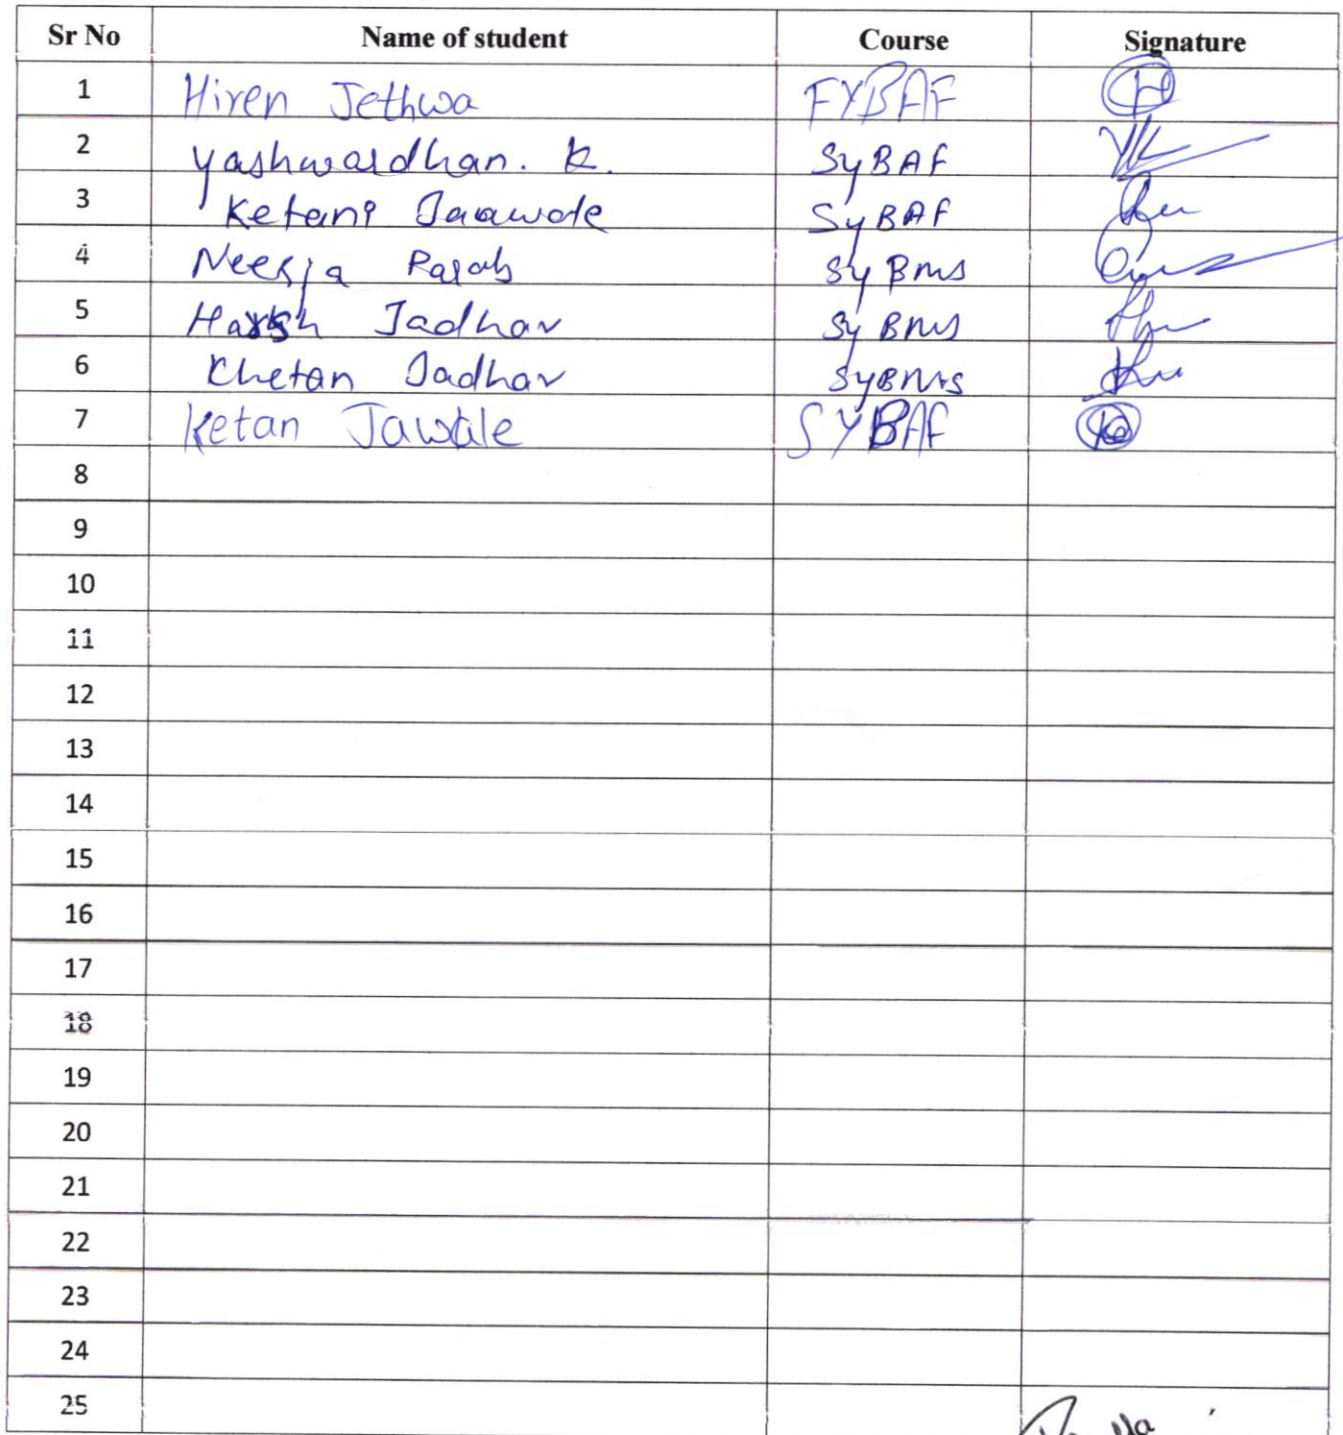 Sr No Name of student Course Signature
1 Hiren Jethwa FYBAF
2 Yashwardhan. K. SyBAF
3 Ketani Jaawale SyBAF
4 Neerja Parab Sy Bms
5 Harsh Jadhav Sy Bms
6 Chetan Jadhav SyBms
7 Ketan Jawale SYBAF
8
9
10
11
12
13
14
15
16
17
18
19
20
21
22
23
24
25